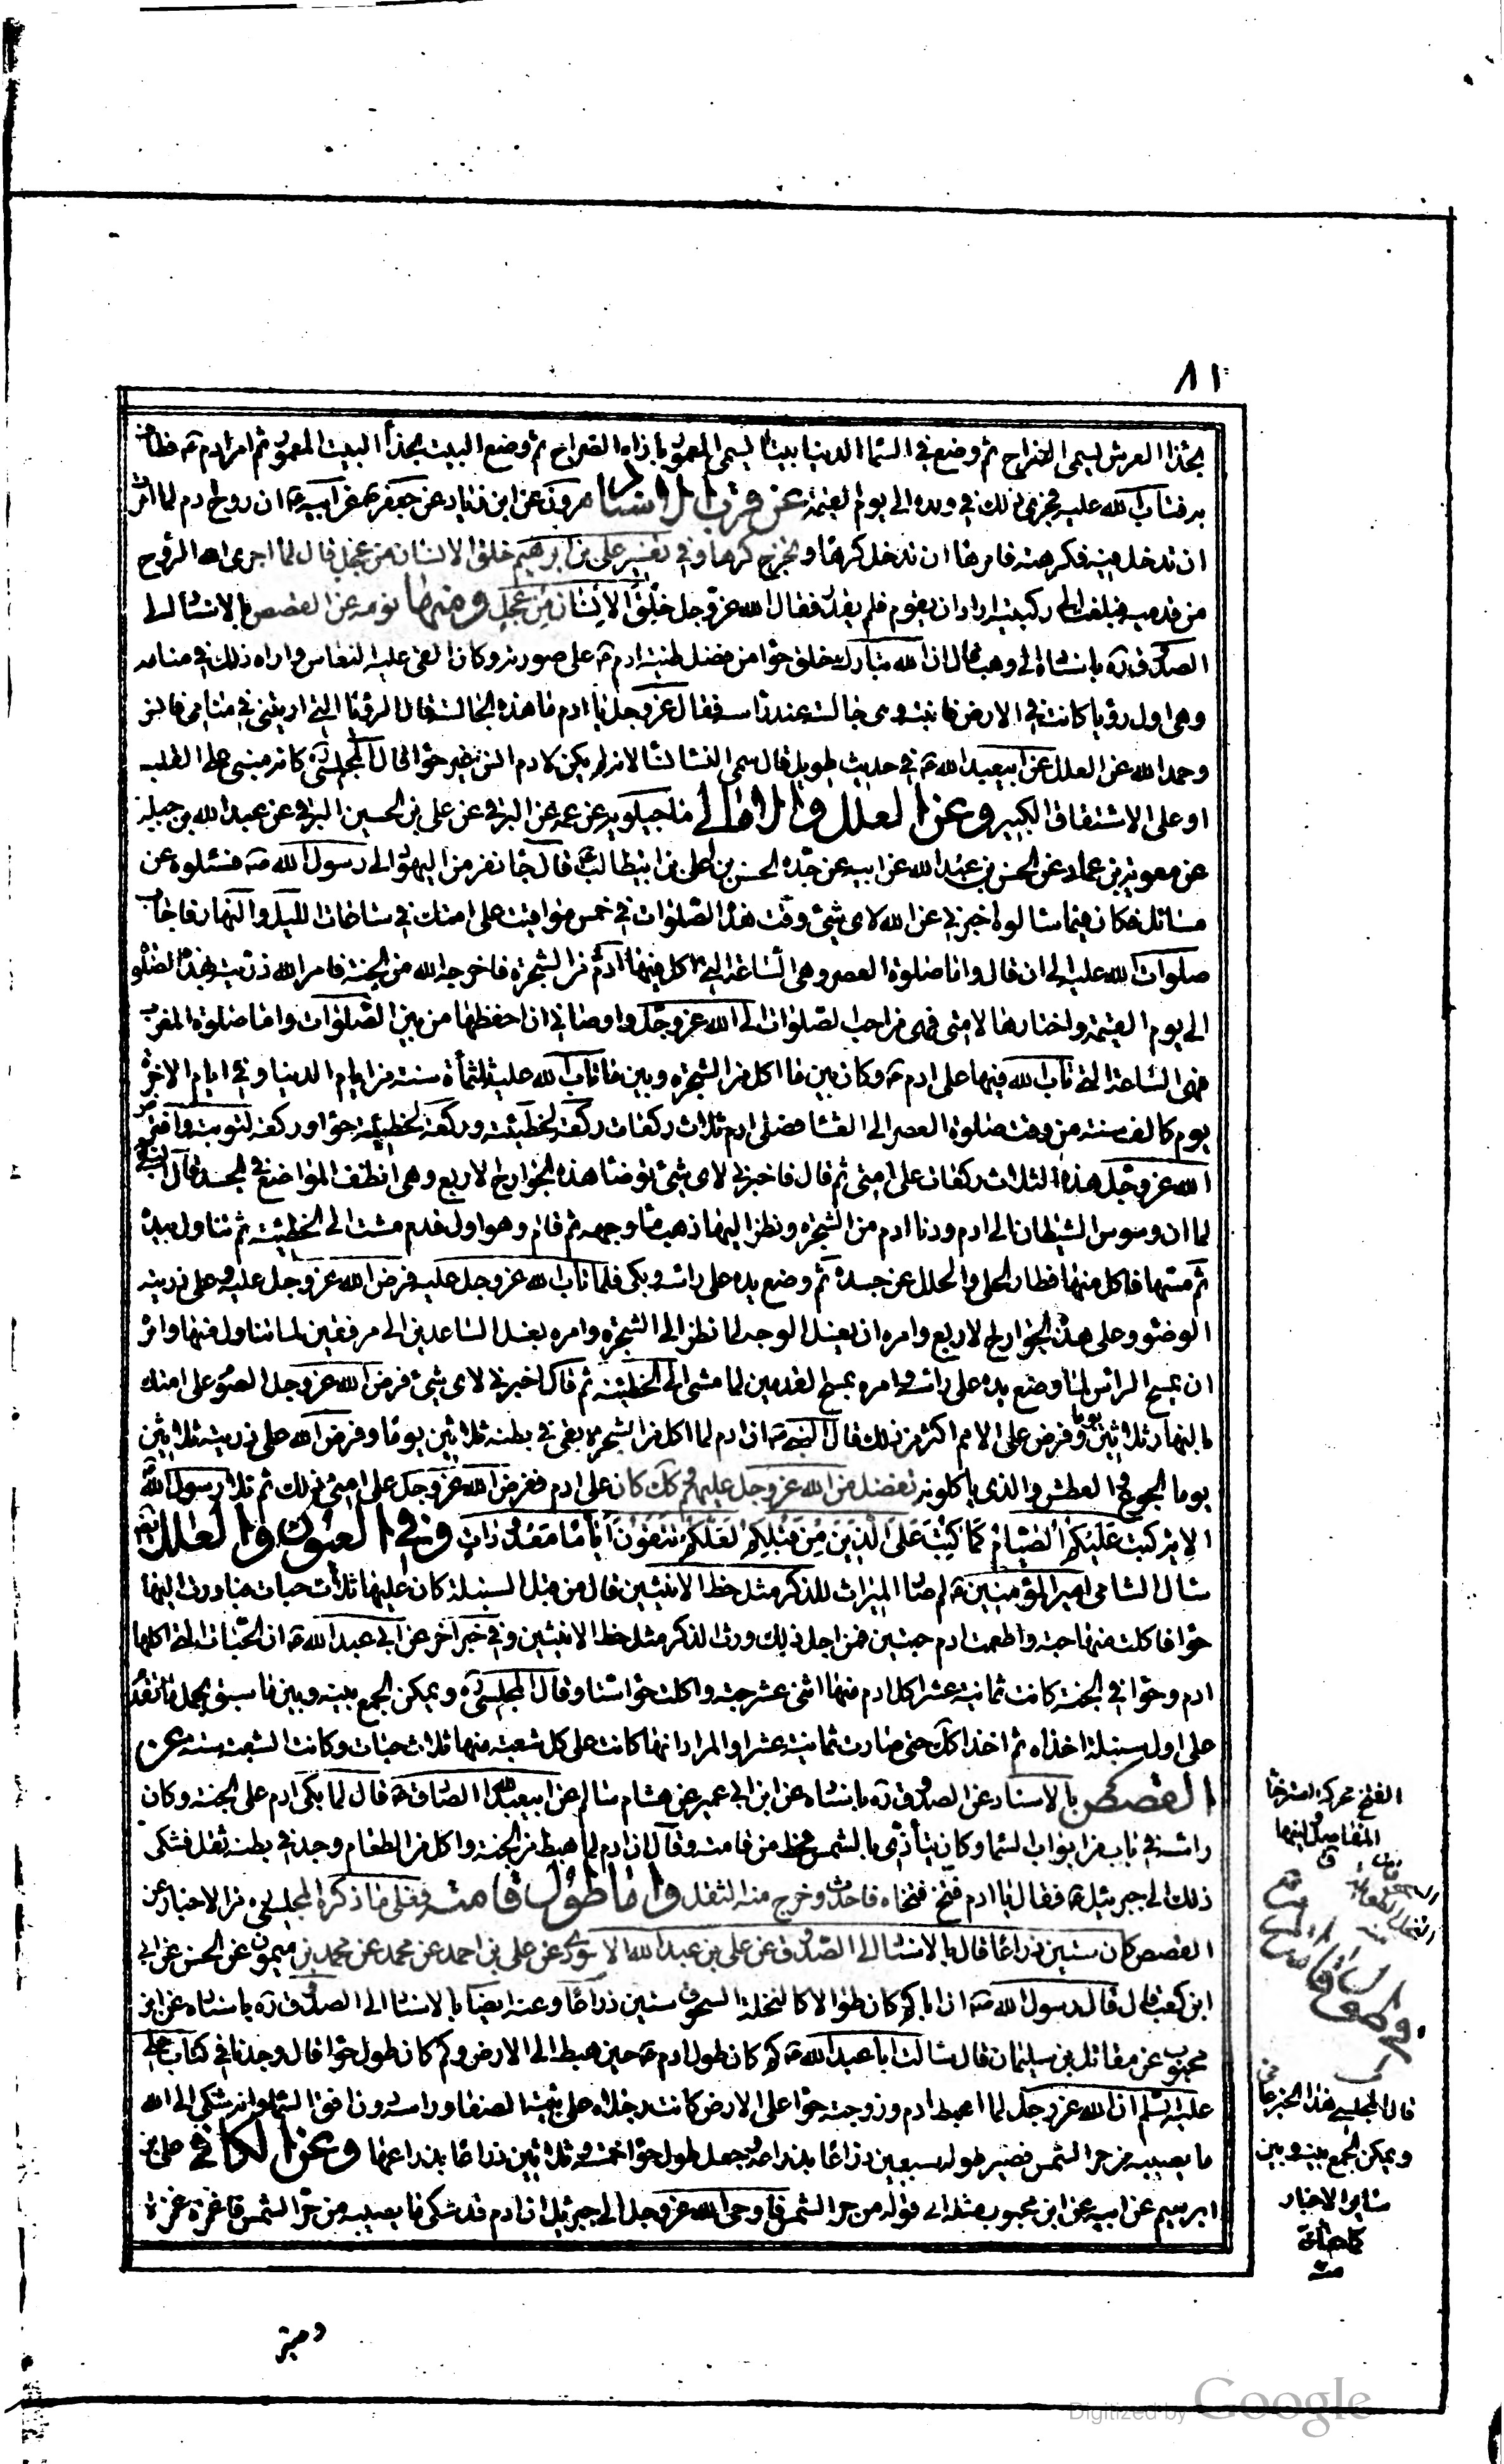 ٨١
بحذاء العرش يسمى الضراح ثم وضع في السماء الدنيا بيتا يسمى المعمور بازاء الضراح ثم وضع البيت بحذاء البيت المعمور ثم امر ادم ع فطاف
به فتاب الله عليه فجرى ذلك في ولده الى يوم القيمة عن قرب الاسناد هرون عن ابن زياد عن جعفر ع عن ابيه ع ان روح ادم لما امر
ان تدخل فيه فكرهته فامرها ان تدخل كرها وتخرج كرها وفي تفسير علي بن ابرهيم خلق الانسان من عجل قال لما اجرى الله الروح
من قدميه فبلغت الى ركبتيه اراد ان يقوم فلم يقدر فقال الله عز وجل خلق الانسان من عجل ومنها نومه عن القصص بالاسناد الى
الصدوق ره باسناده الى وهب قال ان الله تبارك خلق حوا من فضل طينة ادم ع على صورته وكان القى عليه النعاس واراه ذلك في منامه
وهي اول رؤيا كانت في الارض فانتبه وهي جالسة عند راسه فقال عز وجل يا ادم ما هذه الجالسة قال الرؤيا التي اريتني في منامي فانس
وحمد الله عن العلل عن ابيعبد الله ع في حديث طويل قال سمى النساء نساء لانه لم يكن لادم انس غير حوا قال المجلسي ره كانه مبني على القلب
او على الاشتقاق الكبير وعن العلل والامالي ماجيلويه عن عمه عن البرقي عن علي بن الحسين البرقي عن عبد الله بن جبلة
عن معوية بن عمار عن الحسن بن عبد الله عن ابيه عن جده الحسن بن علي بن ابيطالب ع قال جاء نفر من اليهود الى رسول الله ص فسئلوه عن
مسائل فكان فيما سالوه اخبرني عن الله لاى شيء وقت هذه الصلوات في خمس مواقيت على امتك في ساعات الليل والنهار فاجاب
صلوات الله عليه الى ان قال واما صلوة العصر وهي الساعة التي اكل فيها ادم من الشجرة فاخرجه الله من الجنة فامر الله ذريته بهذه الصلوة
الى يوم القيمة واختارها لامتي فهي من احب الصلوات الى الله عز وجل واوصاني ان احفظها من بين الصلوات واما صلوة المغرب
فهي الساعة التي تاب الله فيها على ادم ع وكان بين ما اكل من الشجرة وبين ما تاب الله عليه ثلثمأة سنة من ايام الدنيا وفي ايام الاخرة
يوم كالف سنة من وقت صلوة العصر الى العشاء فصلى ادم ثلاث ركعات ركعة لخطيئته وركعة لخطيئة حوا وركعة لتوبته فافترض
الله عز وجل هذه الثلاث ركعات على امتي ثم قال فاخبرني لاى شيء توضا هذه الجوارح الاربع وهي انظف المواضع في الجسد قال النبي ص
لما ان وسوس الشيطان الى ادم ودنا ادم من الشجرة ونظر اليها ذهب ماء وجهه ثم قام وهو اول قدم مشت الى الخطيئة ثم تناول بيده
ثم مسها فاكل منها فطار الحلي والحلل عن جسده ثم وضع يده على راسه وبكى فلما تاب الله عز وجل عليه فرض الله عز وجل عليه وعلى ذريته
الوضوء وعلى هذه الجوارح الاربع وامره ان يغسل الوجه لما نظر الى الشجرة وامره بغسل الساعدين الى مرفقين لما تناول منها وامر
ان يمسح الراس لما وضع يده على راسه وامره بمسح القدمين لما مشى الى الخطيئة ثم قال اخبرني لاى شيء فرض الله عز وجل الصوم على امتك
بالنهار ثلاثين يوما وفرض على الامم اكثر من ذلك فقال النبي ص ان ادم لما اكل من الشجرة بقى في بطنه ثلاثين يوما وفرض الله على ذريته ثلاثين
يوما الجوع والعطش والذى ياكلونه تفضل من الله عز وجل عليهم وكك كان على ادم ففرض الله عز وجل على امتي ذلك ثم تلا رسول الله
الاية كتب عليكم الصيام كما كتب على الذين من قبلكم لعلكم تتقون اياما معدودات وفي العيون والعلل
سال الشامي امير المؤمنين ع لم صار الميراث للذكر مثل حظ الانثيين قال من قبل السنبلة كان عليها ثلاث حبات فبادرت اليها
حوا فاكلت منها حبة واطعمت ادم حبتين فمن اجل ذلك ورث الذكر مثل حظ الانثيين وفي خبر اخر عن ابي عبد الله ع ان الحبات التي اكلها
ادم وحوا في الجنة كانت ثمانية عشر اكل ادم منها اثنى عشر حبة واكلت حوا ستا وقال المجلسي ره ويمكن الجمع بينه وبين ما سبق بحمل ما تقدم
على اول سنبلة اخذاه ثم اخذا كك حتى صارت ثمانية عشر او المراد انها كانت على كل شعبة منها ثلاث حبات وكانت الشعب ستة عن
القصص بالاسناد عن الصدوق ره باسناده عن ابن ابي عمير عن هشام بن سالم عن ابيعبد الله الصادق ع قال لما بكى ادم على الجنة وكان
راسه في باب من ابواب السماء وكان يتأذى بالشمس فحط من قامته وقال ان ادم لما هبط من الجنة واكل من الطعام وجد في بطنه ثقل فشكى
ذلك الى جبرئيل ع فقال يا ادم فتنح فنحاه فاحدث وخرج منه الثفل واما طول قامته فعلى ما ذكره المجلسي ره من الاخبار عن
القصص كان ستين ذراعا قال بالاسناد الى الصدوق عن علي بن عبد الله الاسوارى عن علي بن احمد عن محمد عن محمد بن ميمون عن الحسن عن ابي
ابن كعب قال قال رسول الله ص ان اباكم كان طوالا كالنخلة السحوق ستين ذراعا وعنه ايضا بالاسناد الى الصدوق ره باسناده عن ابن
محبوب عن مقاتل بن سليمان قال سالت ابا عبد الله ع كم كان طول ادم ع حين هبط الى الارض وكم كان طول حوا قال وجدنا في كتاب علي
عليه السلم ان الله عز وجل لما اهبط ادم وزوجته حوا على الارض كانت رجلاه على ثنية الصفا وراسه دون افق السماء وانه شكى الى الله
ما يصيبه من حر الشمس فصير طوله سبعين ذراعا بذراعه وجعل طول حوا خمسة وثلاثين ذراعا بذراعها وعن الكافي علي بن
ابرهيم عن ابيه عن ابن محبوب مثله الى قوله من حر الشمس فاوحى الله عز وجل الى جبرئيل ان ادم قد شكى ما يصيبه من حر الشمس فاغمزه غمزة
الفنخ محركة استرخاء
المفاصل ولينها
وطول قامته
قال المجلسي هذا الخبر
ويمكن الجمع بينه وبين
ساير الاخبار
Digitized by Google